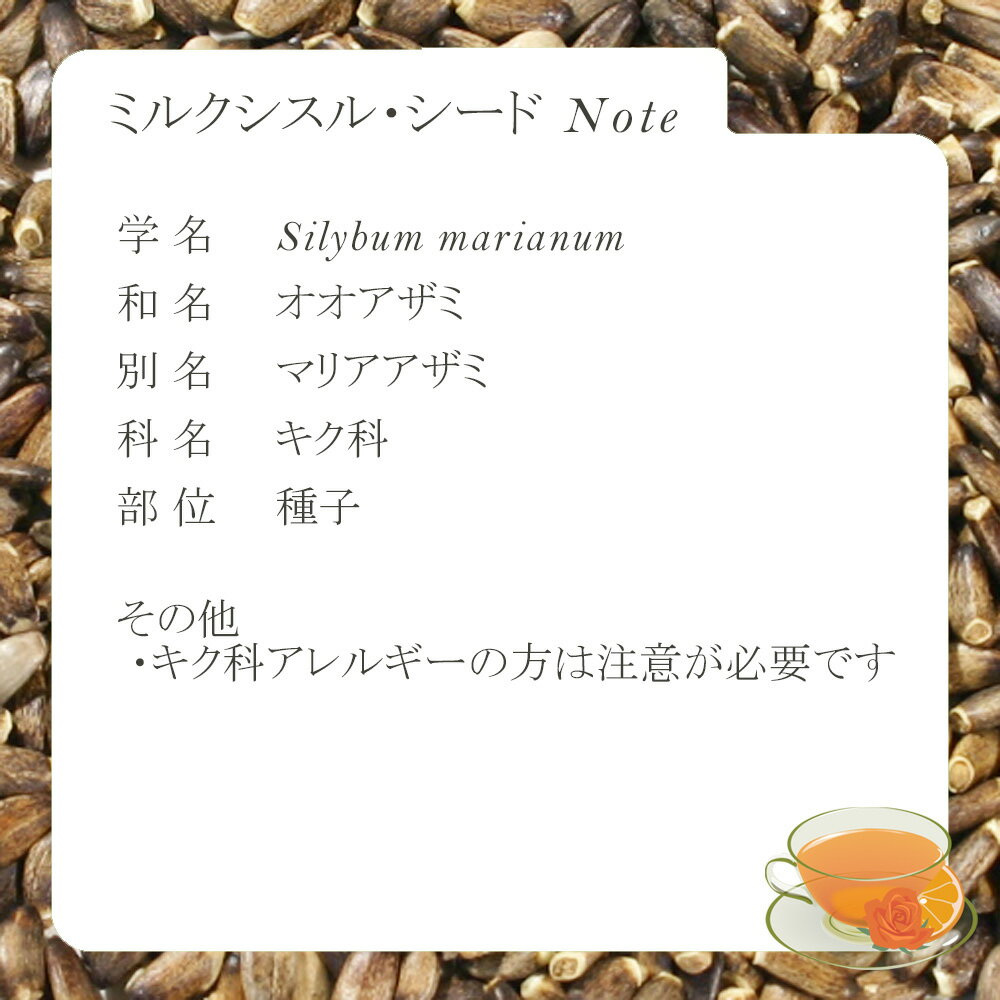 ミルクシスル・シード Note
学名 Silybum marianum
和名 オオアザミ
別名 マリアアザミ
科名 キク科
部位 種子
その他
・キク科アレルギーの方は注意が必要です